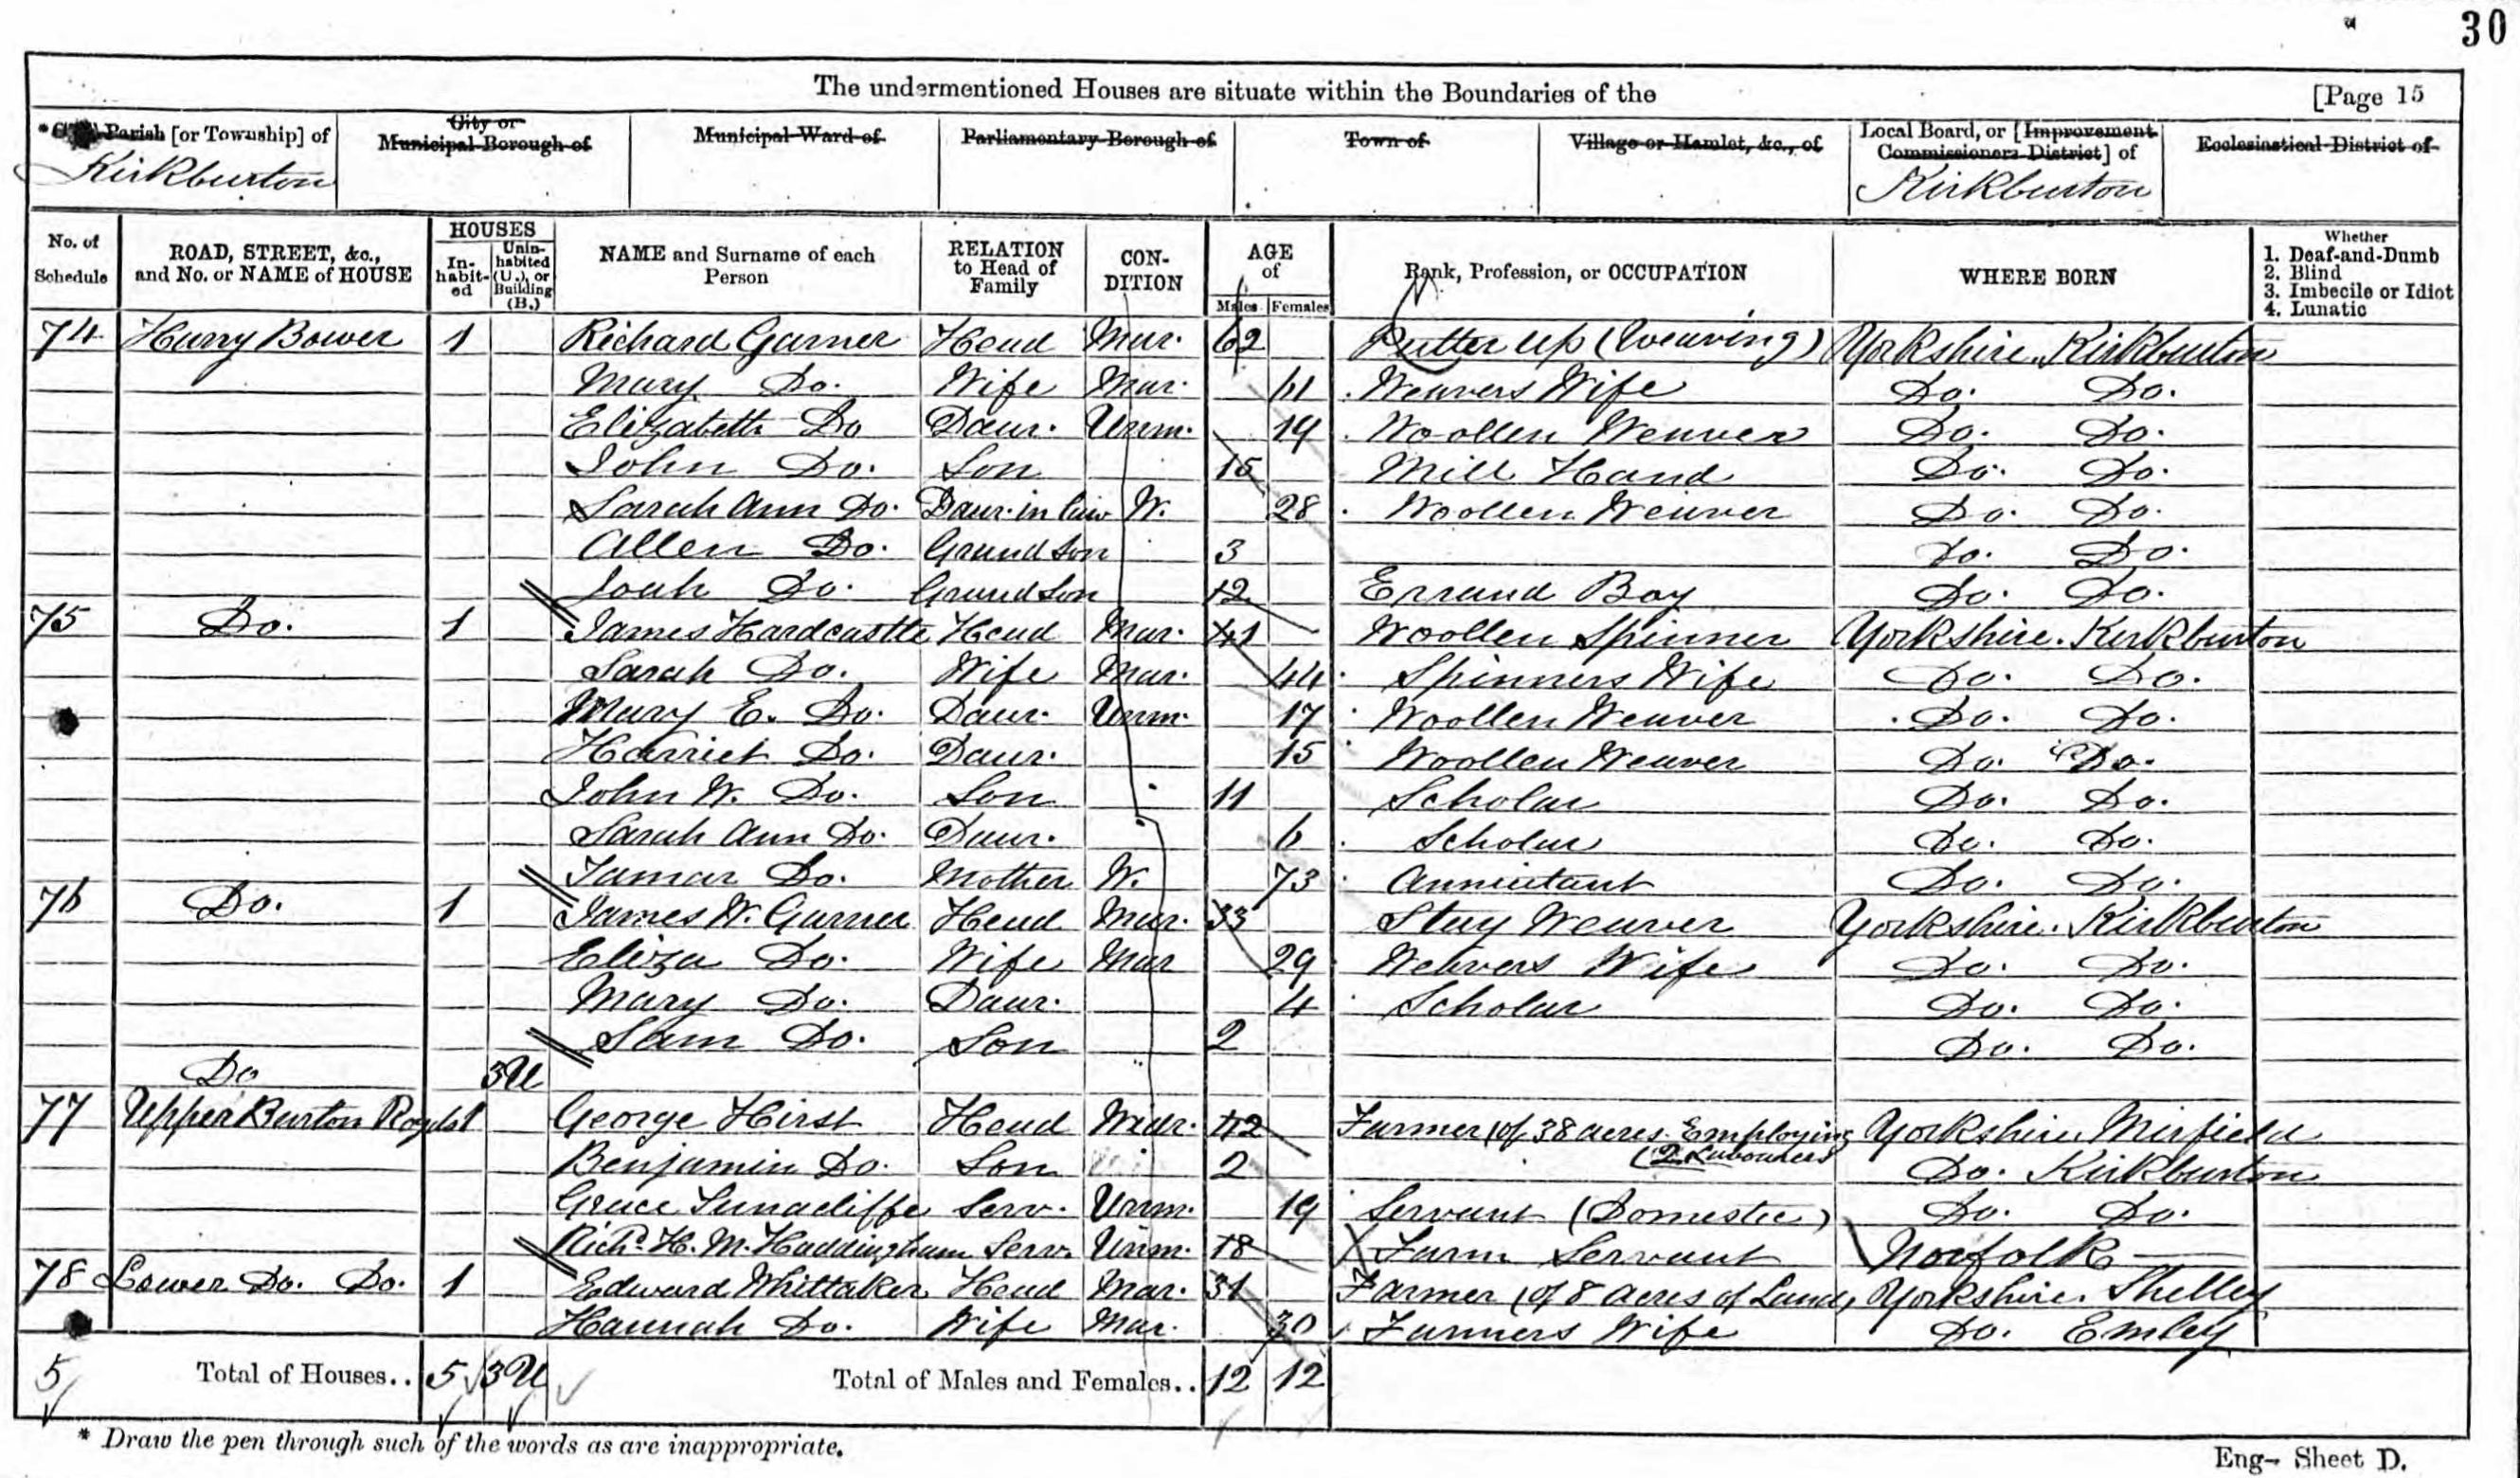 30
The undermentioned Houses are situate within the Boundaries of the [Page 15
Parish [or Township] of City or Municipal Borough of Municipal Ward of Parliamentary Borough of Town of Village or Hamlet, &c., of Local Board, or [Improvement Commissioners District] of Ecclesiastical District of
Kirkburton Kirkburton
No. of Schedule ROAD, STREET, &c., and No. or NAME of HOUSE HOUSES In-habit-ed Unin-habited (U.), or Building (B.) NAME and Surname of each Person RELATION to Head of Family CON-DITION AGE of Males Females Rank, Profession, or OCCUPATION WHERE BORN Whether 1. Deaf-and-Dumb 2. Blind 3. Imbecile or Idiot 4. Lunatic
74 Harry Bower 1 Richard Garner Head Mar. 62 Putter up (Weaving) Yorkshire. Kirkburton
Mary Do. Wife Mar. 61 Weavers Wife Do. Do.
Elizabeth Do Daur. Unm. 19 Woollen Weaver Do. Do.
John Do. Son 15 Mill Hand Do. Do.
Sarah Ann Do. Daur. in law W. 28 Woollen Weaver Do. Do.
Allen Do. Grand Son 3 Do. Do.
Joah Do. Grand Son 12 Errand Boy Do. Do.
75 Do. 1 James Hardcastle Head Mar. 41 Woollen Spinner Yorkshire. Kirkburton
Sarah Do. Wife Mar. 44 Spinners Wife Do. Do.
Mary E. Do. Daur. Unm. 17 Woollen Weaver Do. Do.
Harriet Do. Daur. 15 Woollen Weaver Do. Do.
John W. Do. Son 11 Scholar Do. Do.
Sarah Ann Do. Daur. 6 Scholar Do. Do.
Tamar Do. Mother W. 73 Annuitant Do. Do.
76 Do. 1 James W. Garner Head Mar. 33 Weaver Yorkshire. Kirkburton
Eliza Do. Wife Mar 29 Weavers Wife Do. Do.
Mary Do. Daur. 4 Scholar Do. Do.
Sam Do. Son 2 Do. Do.
Do 3U
77 Upper Burton Royd 1 George Hirst Head Widr. 42 Farmer (of 38 acres. Employing Yorkshire. Mirfield
(2 Labourers
Benjamin Do. Son 2 Do. Kirkburton
Grace Sunacliffe Serv. Unm. 19 Servant (Domestic) Do. Do.
Richd. H. M. Haddingham Serv. Unm. 18 Farm Servant Norfolk
78 Lower Do. Do. 1 Edward Whittaker Head Mar. 31 Farmer (of 8 acres of Land) Yorkshire. Shelley
Hannah Do. Wife Mar. 30 Farmers Wife Do. Emley
5 Total of Houses.. 5 3U Total of Males and Females.. 12 12
* Draw the pen through such of the words as are inappropriate.
Eng- Sheet D.